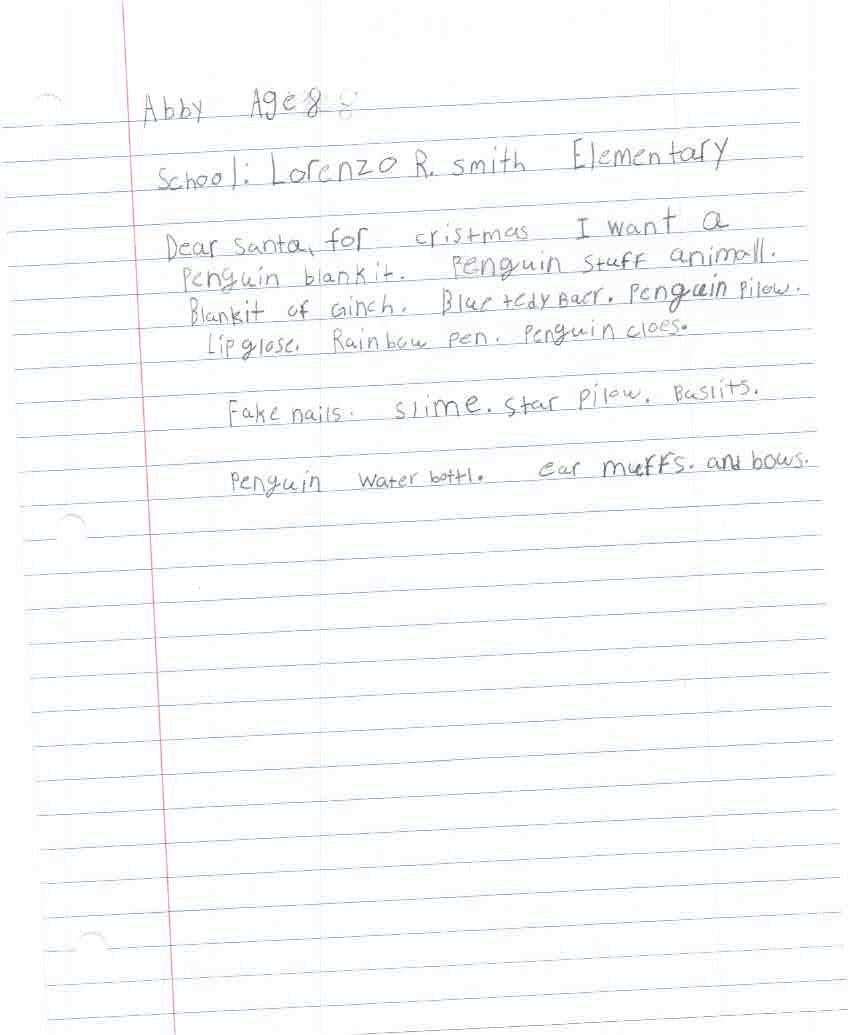 Abby Age 8 8
School: Lorenzo R. smith Elementary
Dear santa, for cristmas I want a
Penguin blankit. Penguin stuff animall.
Blankit of Ginch. Blue tedy Baer. Penguin pilow.
Lip glose. Rainbow pen. Penguin cloes.
Fake nails. slime. star pilow. Baslits.
Penguin water bottl. ear muffs. and bows.